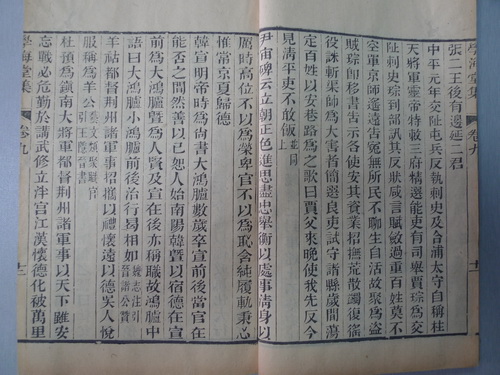 學海堂集
卷九
張二王後有邊延二君
中平元年交阯屯兵反執刺史及合浦太守自稱柱
天將軍靈帝特敕三府精選能吏有司舉賈琮爲交
阯刺史琮到部訊其反狀咸言賦斂過重百姓莫不
空單京師遙遠告冤無所民不聊生自活故聚爲盜
賊琮卽移書告示各使安其資業招撫荒散蠲復徭
役誅斬渠帥爲大害者簡選良吏試守諸縣歲間蕩
定百姓以安巷路爲之歌曰賈父來晚使我先反今
見清平吏不敢飯同上
尹宙碑云立朝正色進思盡忠舉衡以處事清身以
厲時高位不以爲榮卑官不以爲恥含純履軌秉心
惟常京夏歸德
韓宣明帝時爲尚書大鴻臚數歲卒宣前後當官在
能否之間然善以已恕人始南陽韓暨以宿德在宣
前爲大鴻臚暨爲人賢及宣在後亦稱職故鴻臚中
語曰大鴻臚小鴻臚前後治行曷相如魏志注引
羊祜都督荆州諸軍事招攜以禮懷遠以德吳人悅
服稱爲羊公
杜預爲鎮南大將軍都督荆州諸軍事以天下雖安
忘戰必危勤於講武修立泮宮江漢懷德化被萬里
學海堂集
卷九